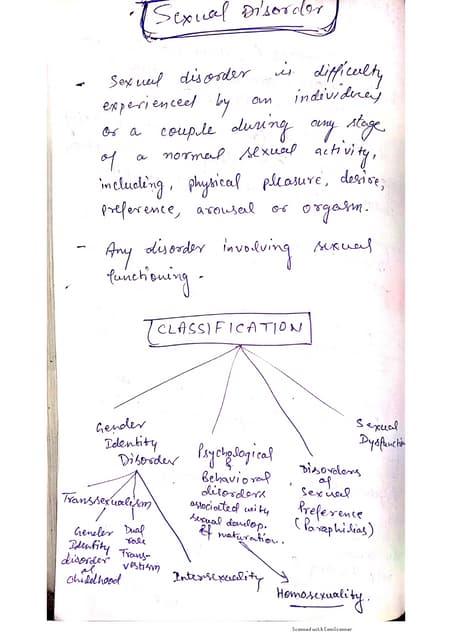 Sexual Disorder
- Sexual disorder is difficulty
experienced by an individual
or a couple during any stage
of a normal sexual activity,
including, physical pleasure, desire,
preference, arousal or orgasm.
- Any disorder involving sexual
functioning.
CLASSIFICATION
Gender
Identity
Disorder
Transsexualism
Gender
Identity
disorder
of
childhood
Dual
role
Trans-
vestism
Intersexuality
Psychological
&
Behavioral
disorders
associated with
sexual develop.
& maturation.
Homosexuality.
Disorders
of
Sexual
Preference
(Paraphilias)
Sexual
Dysfunction
Scanned with CamScanner